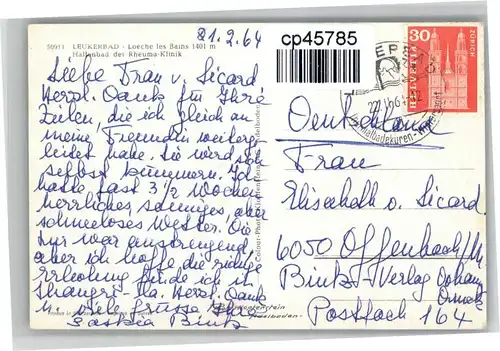 50911 LEUKERBAD - Loèche les Bains 1401 m
Hallenbad der Rheuma-Klinik
21.2.64
cp45785
30
HELVETIA
ZÜRICH
Liebe Frau v. Sicard
Herzl. Dank für Ihre
Zeilen, die ich gleich an
meine Freundin weiterge
leitet habe. Sie wird sich
selbst kümmern. Ich
hatte fast 3 1/2 Wochen
herrliches, sonniges, aber
schneeloses Wetter. Die
Kur war anstrengend,
aber ich hoffe die richtige
Erholung finde ich in
Herzl. Dank
u. viele Grüsse Ihre
Saskia Bintz
Deutschland
Frau
Elisabeth v. Sicard
6050 Offenbach/M
Bintz-Verlag
Postfach 164